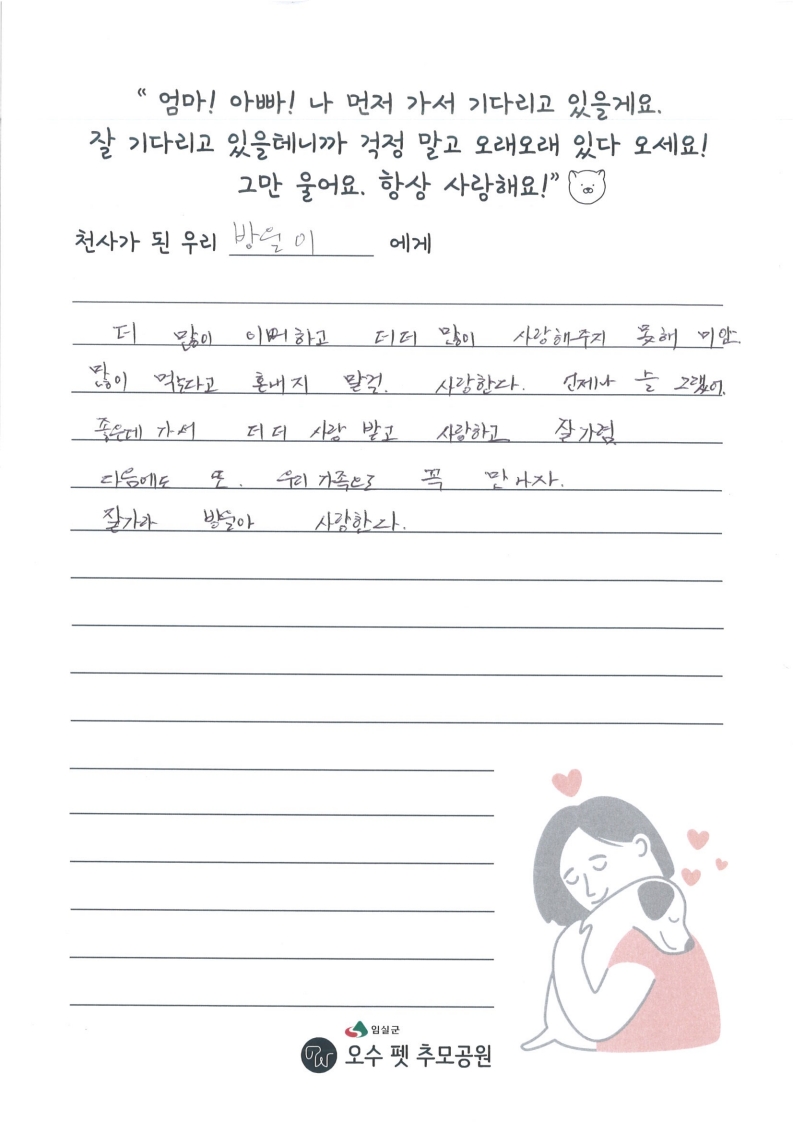 “ 엄마! 아빠! 나 먼저 가서 기다리고 있을게요.
잘 기다리고 있을테니까 걱정 말고 오래오래 있다 오세요!
그만 울어요. 항상 사랑해요!”
천사가 된 우리 방울이 에게
더 많이 이뻐하고 더더 많이 사랑해주지 못해 미안.
많이 먹는다고 혼내지 말걸. 사랑한다. 언제나 늘 그랬어.
좋은데 가서 더더 사랑 받고 사랑하고 잘가렴
다음에도 또. 우리 가족으로 꼭 만나자.
잘가라 방울아 사랑한다.
임실군
오수 펫 추모공원